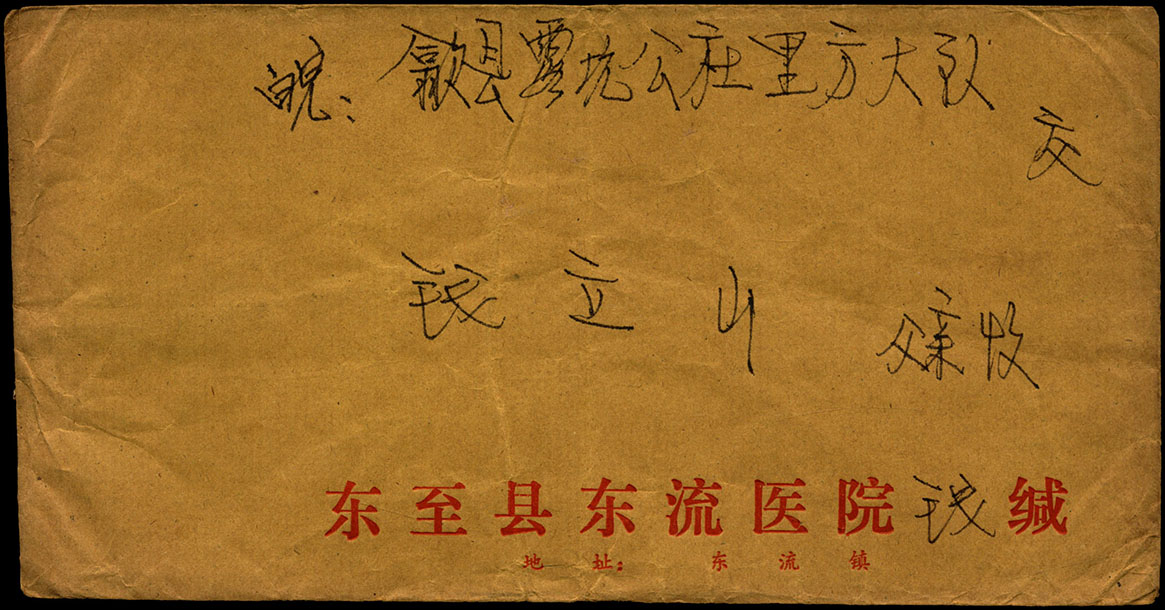 皖：歙县霞坑公社里方大队
交
钱立山 父亲收
东至县东流医院钱缄
地址：东流镇